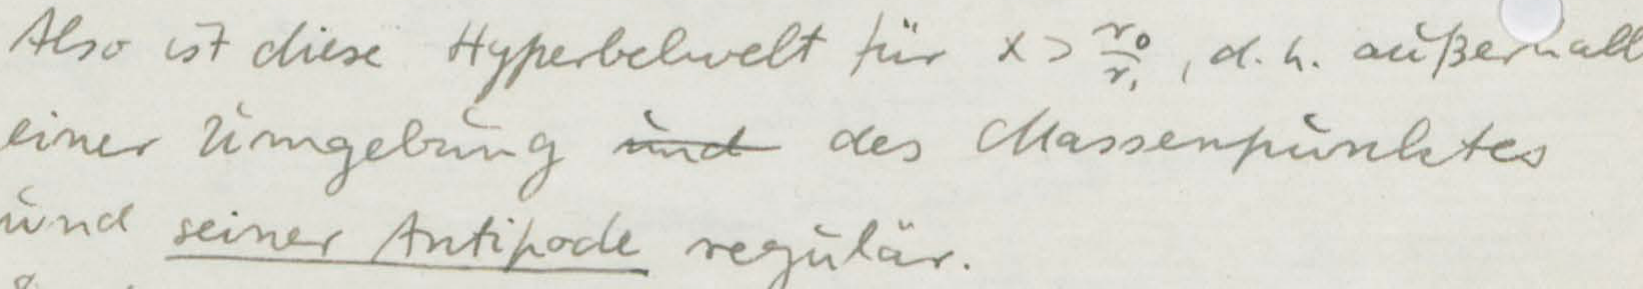 Also ist diese Hyperbelwelt für x > r₀/r₁, d.h. außerhalb
einer Umgebung ~~und~~ des Massenpunktes
und seiner Antipode regulär.